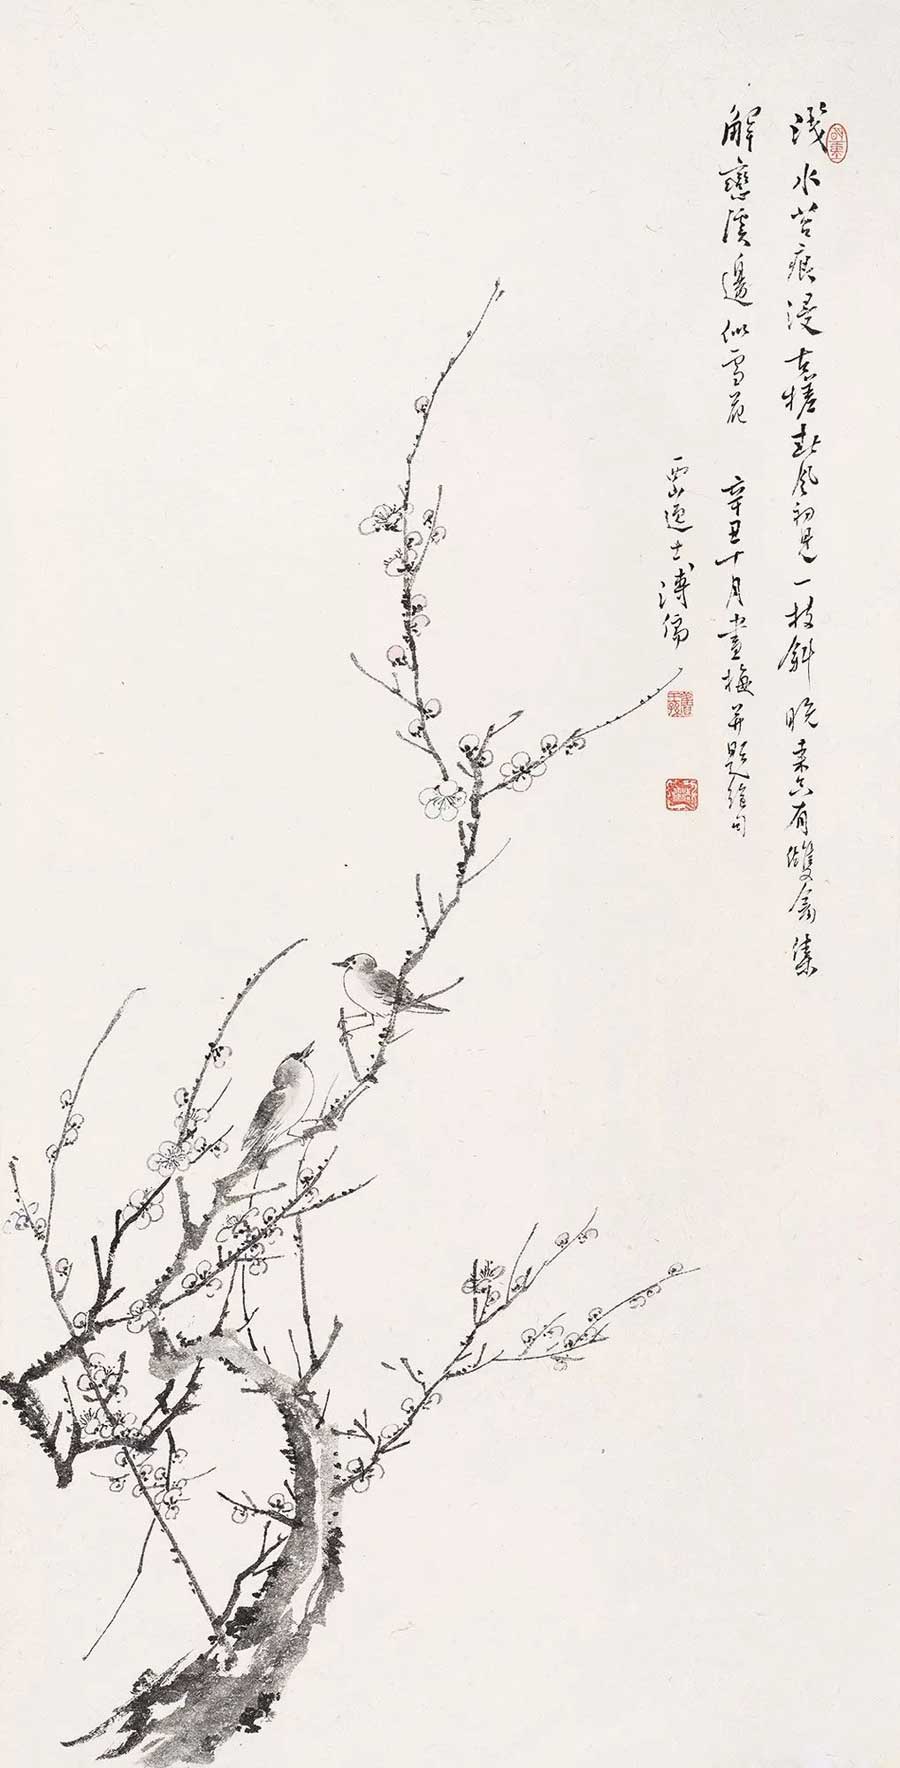 淺水苔痕浸古槎春風初見一枝斜晚來亦有雙禽集
解戀溪邊似雪花　辛丑十月畫梅并題絕句
西山逸士溥儒